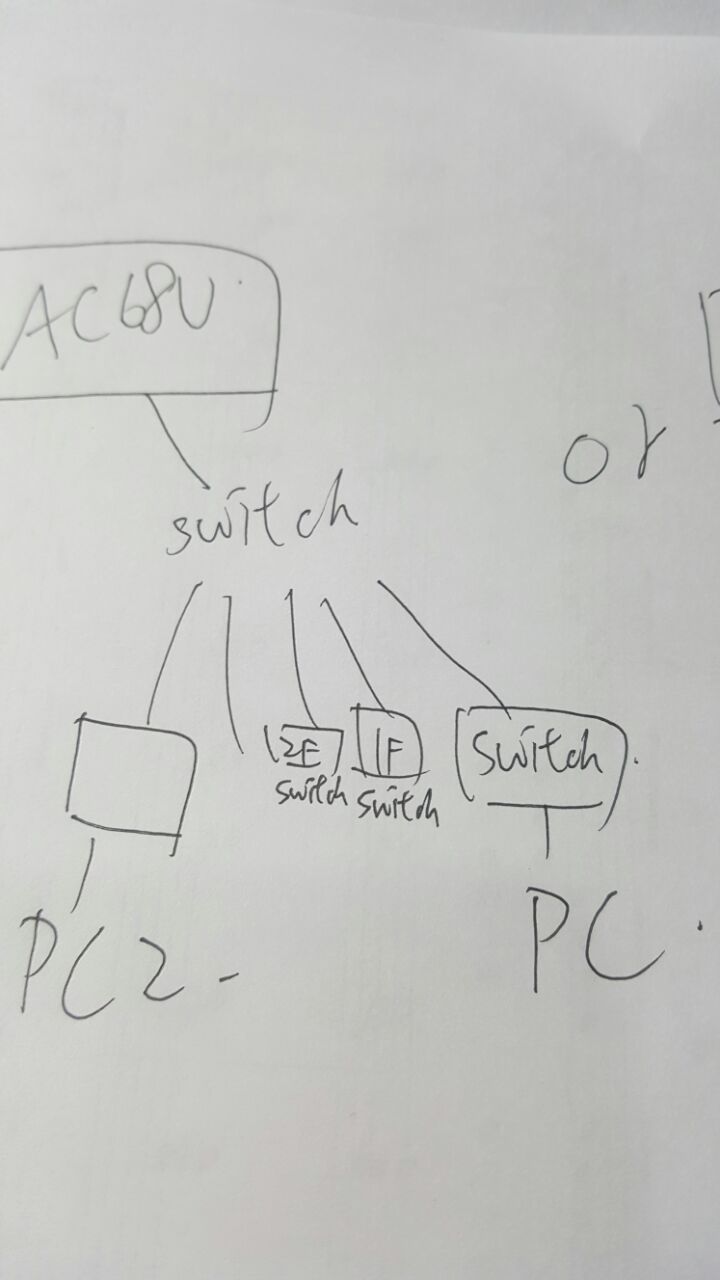 AC68U
or
switch
2F
switch
1F
switch
switch
PC2
PC